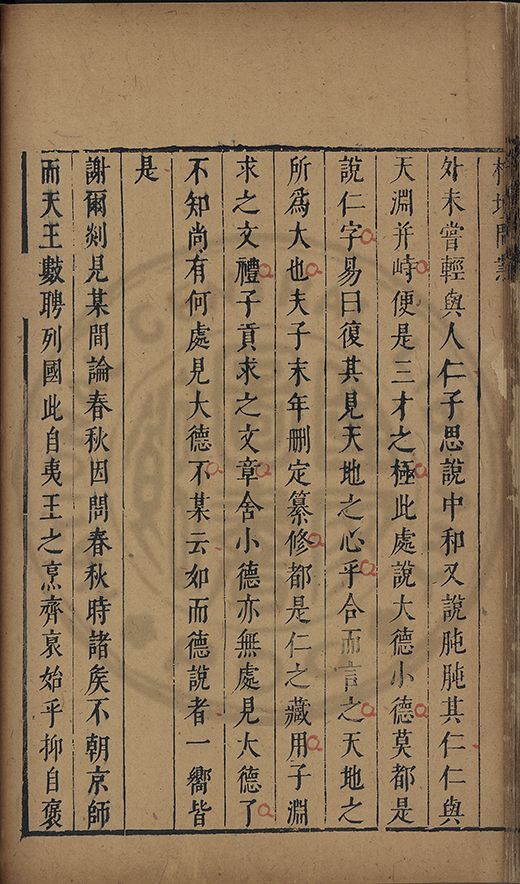 外未嘗輕與人仁子思說中和又說肫肫其仁仁與
天淵并峙便是三才之極此處說大德小德莫都是
說仁字易曰復其見天地之心乎合而言之天地之
所爲大也夫子末年刪定纂修都是仁之藏用子淵
求之文禮子貢求之文章舍小德亦無處見大德了
不知尚有何處見大德不某云如而德說者一嚮皆
是
謝爾剡見某間論春秋因問春秋時諸矦不朝京師
而天王數聘列國此自夷王之烹齊哀始乎抑自褒